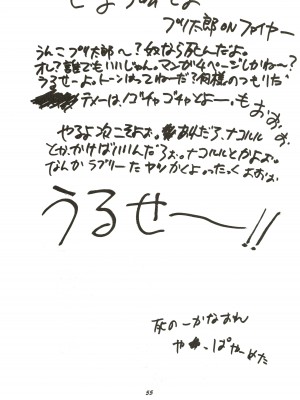 プリ太郎 ON ファイヤー
うんこプリ太郎〜?奴なら死んだよ。
オレ?誰でもいいじゃん。マンガ4ページしかねー?
うるせーよ。トーンはってねーだ?何様のつもりだ
テメーは、ゴチャゴチャとよー。もおおお
やるよ次こそよぉ。あれだろ、ナコルル
とか、かけばいいんだろぉ。ナコルルとかよぉ。
なんかラブリーたヤツかくよ。ったくよおぉ
うるせ〜〜!!
灰の一かなおれ
や ぱやめた
55